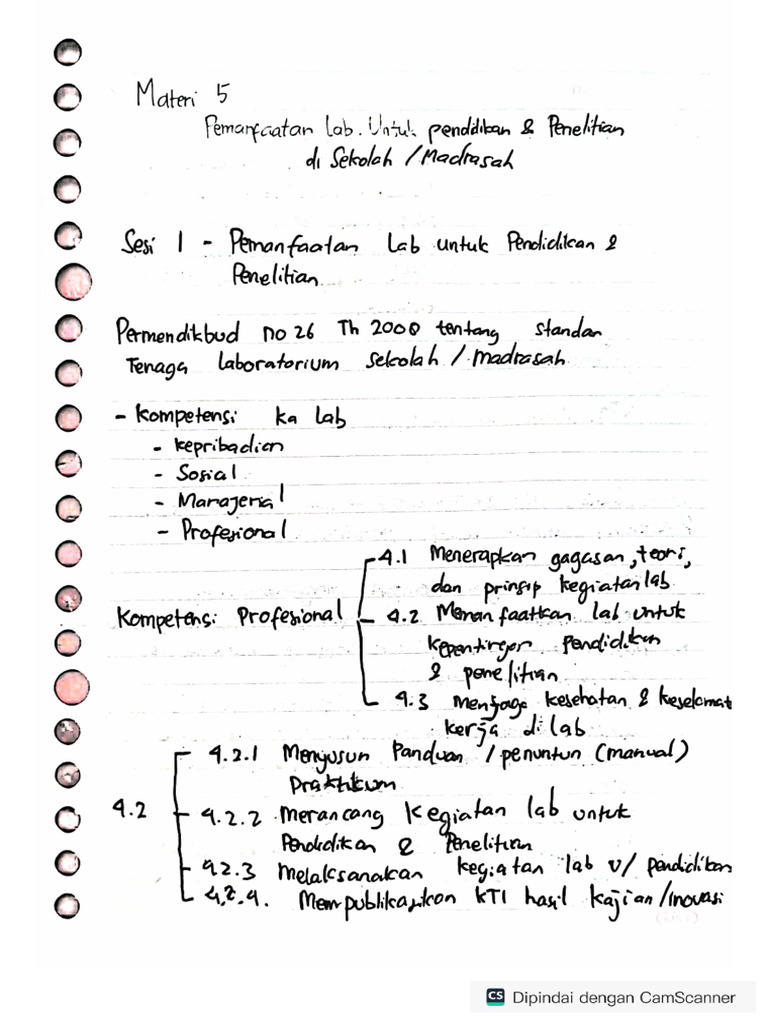 Materi 5
Pemanfaatan Lab. Untuk pendidikan & Penelitian
di Sekolah / Madrasah
Sesi 1 - Pemanfaatan Lab untuk Pendidikan &
Penelitian
Permendikbud no 26 Th 2008 tentang standar
Tenaga laboratorium sekolah / madrasah
- Kompetensi ka lab
- kepribadian
- Sosial
- Manajerial
- Profesional
4.1 Menerapkan gagasan, teori,
dan prinsip kegiatan lab
Kompetensi Profesional
4.2 Memanfaatkan lab untuk
kepentingan pendidikan
& penelitian
4.3 Menjaga kesehatan & keselamat
kerja di lab
4.2
4.2.1 Menyusun Panduan / penuntun (manual)
Praktikum
4.2.2 Merancang kegiatan lab untuk
Pendidikan & Penelitian
4.2.3 Melaksanakan kegiatan lab u/ pendidikan
4.2.4. Mempublikasikan KTI hasil kajian/inovasi
CS Dipindai dengan CamScanner